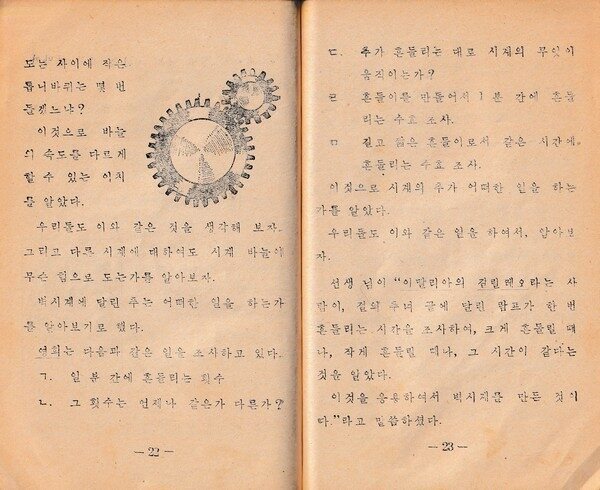 도는 사이에 작은
톱니바퀴는 몇 번
돌겠느냐?
이것으로 바늘
의 속도를 다르게
할 수 있는 이치
를 알았다.
우리들도 이와 같은 것을 생각해 보자.
그리고 다른 시계에 대하여도 시계 바늘이
무슨 힘으로 도는가를 알아보자.
벽시계에 달린 추는 어떠한 일을 하는가
를 알아보기로 했다.
영희는 다음과 같은 일을 조사하고 있다.
ㄱ. 일 분 간에 흔들리는 횟수
ㄴ. 그 횟수는 언제나 같은가 다른가?
— 22 —
ㄷ. 추가 흔들리는 대로 시계의 무엇이
움직이는가?
ㄹ 흔들이를 만들어서 1 분 간에 흔들
리는 수효 조사.
ㅁ 길고 짧은 흔들이로서 같은 시간에
흔들리는 수효 조사.
이것으로 시계의 추가 어떠한 일을 하는
가를 알았다.
우리들도 이와 같은 일을 하여서, 알아보
자.
선생 님이 “이딸리아의 갈릴레오라는 사
람이, 절의 추녀 끝에 달린 람프가 한 번
흔들리는 시간을 조사하여, 크게 흔들릴 때
나, 작게 흔들릴 때나, 그 시간이 같다는
것을 알았다.
이것을 응용하여서 벽시계를 만든 것이
다.”라고 말씀하셨다.
— 23 —